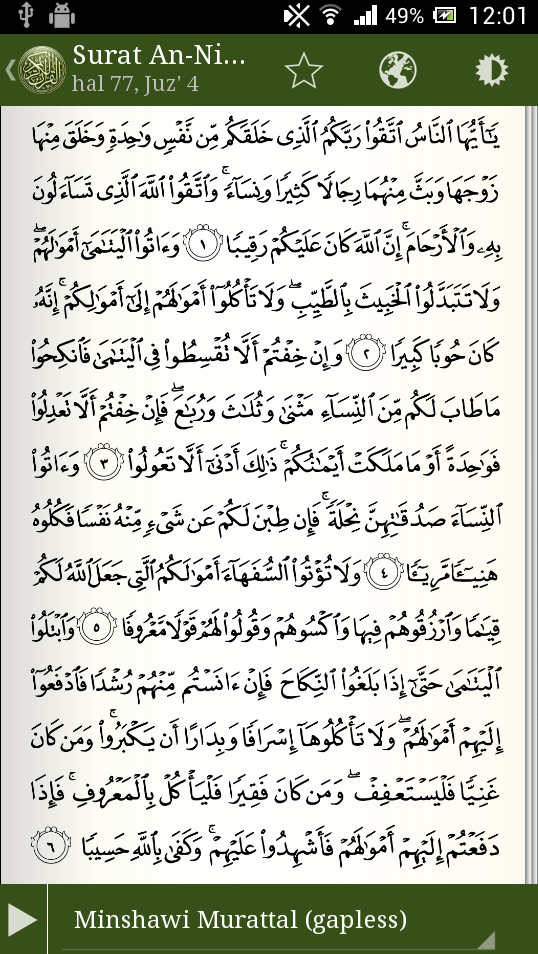 49% 12:01
Surat An-Ni...
hal 77, Juz' 4
يَـٰٓأَيُّهَا ٱلنَّاسُ ٱتَّقُوا۟ رَبَّكُمُ ٱلَّذِى خَلَقَكُم مِّن نَّفْسٍ وَٰحِدَةٍ وَخَلَقَ مِنْهَا
زَوْجَهَا وَبَثَّ مِنْهُمَا رِجَالًا كَثِيرًا وَنِسَآءً ۚ وَٱتَّقُوا۟ ٱللَّهَ ٱلَّذِى تَسَآءَلُونَ
بِهِۦ وَٱلْأَرْحَامَ ۚ إِنَّ ٱللَّهَ كَانَ عَلَيْكُمْ رَقِيبًا ١ وَءَاتُوا۟ ٱلْيَتَـٰمَىٰٓ أَمْوَٰلَهُمْ ۖ
وَلَا تَتَبَدَّلُوا۟ ٱلْخَبِيثَ بِٱلطَّيِّبِ ۖ وَلَا تَأْكُلُوٓا۟ أَمْوَٰلَهُمْ إِلَىٰٓ أَمْوَٰلِكُمْ ۚ إِنَّهُۥ
كَانَ حُوبًا كَبِيرًا ٢ وَإِنْ خِفْتُمْ أَلَّا تُقْسِطُوا۟ فِى ٱلْيَتَـٰمَىٰ فَٱنكِحُوا۟
مَا طَابَ لَكُم مِّنَ ٱلنِّسَآءِ مَثْنَىٰ وَثُلَـٰثَ وَرُبَـٰعَ ۖ فَإِنْ خِفْتُمْ أَلَّا تَعْدِلُوا۟
فَوَٰحِدَةً أَوْ مَا مَلَكَتْ أَيْمَـٰنُكُمْ ۚ ذَٰلِكَ أَدْنَىٰٓ أَلَّا تَعُولُوا۟ ٣ وَءَاتُوا۟
ٱلنِّسَآءَ صَدُقَـٰتِهِنَّ نِحْلَةً ۚ فَإِن طِبْنَ لَكُمْ عَن شَىْءٍ مِّنْهُ نَفْسًا فَكُلُوهُ
هَنِيٓـًٔا مَّرِيٓـًٔا ٤ وَلَا تُؤْتُوا۟ ٱلسُّفَهَآءَ أَمْوَٰلَكُمُ ٱلَّتِى جَعَلَ ٱللَّهُ لَكُمْ
قِيَـٰمًا وَٱرْزُقُوهُمْ فِيهَا وَٱكْسُوهُمْ وَقُولُوا۟ لَهُمْ قَوْلًا مَّعْرُوفًا ٥ وَٱبْتَلُوا۟
ٱلْيَتَـٰمَىٰ حَتَّىٰٓ إِذَا بَلَغُوا۟ ٱلنِّكَاحَ فَإِنْ ءَانَسْتُم مِّنْهُمْ رُشْدًا فَٱدْفَعُوٓا۟
إِلَيْهِمْ أَمْوَٰلَهُمْ ۖ وَلَا تَأْكُلُوهَآ إِسْرَافًا وَبِدَارًا أَن يَكْبَرُوا۟ ۚ وَمَن كَانَ
غَنِيًّا فَلْيَسْتَعْفِفْ ۖ وَمَن كَانَ فَقِيرًا فَلْيَأْكُلْ بِٱلْمَعْرُوفِ ۚ فَإِذَا
دَفَعْتُمْ إِلَيْهِمْ أَمْوَٰلَهُمْ فَأَشْهِدُوا۟ عَلَيْهِمْ ۚ وَكَفَىٰ بِٱللَّهِ حَسِيبًا ٦
Minshawi Murattal (gapless)